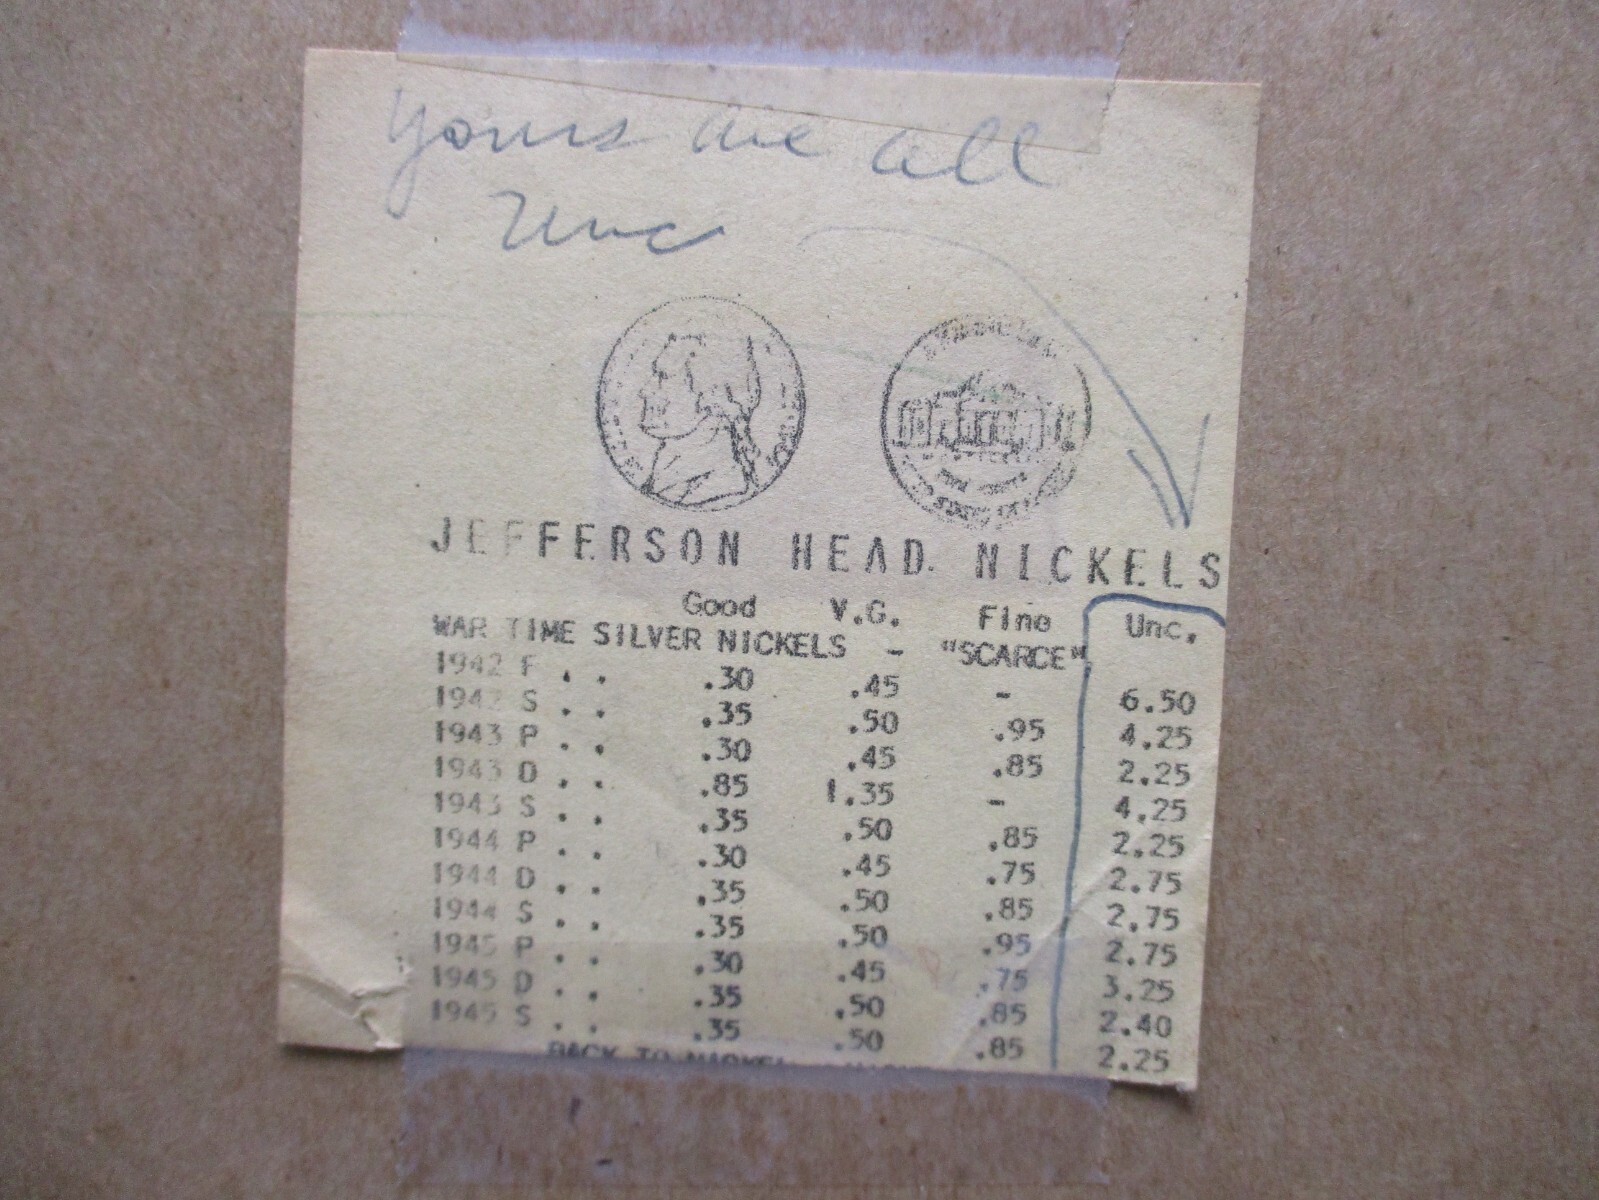 yours are all
Unc
JEFFERSON HEAD NICKELS
Good V.G. Fine Unc.
WAR TIME SILVER NICKELS - "SCARCE"
1942 P . . .30 .45 - 6.50
1942 S . . .35 .50 .95 4.25
1943 P . . .30 .45 .85 2.25
1943 D . . .85 1.35 - 4.25
1943 S . . .35 .50 .85 2.25
1944 P . . .30 .45 .75 2.75
1944 D . . .35 .50 .85 2.75
1944 S . . .35 .50 .95 2.75
1945 P . . .30 .45 .75 3.25
1945 D . . .35 .50 .85 2.40
1945 S . . .35 .50 .85 2.25
BACK TO